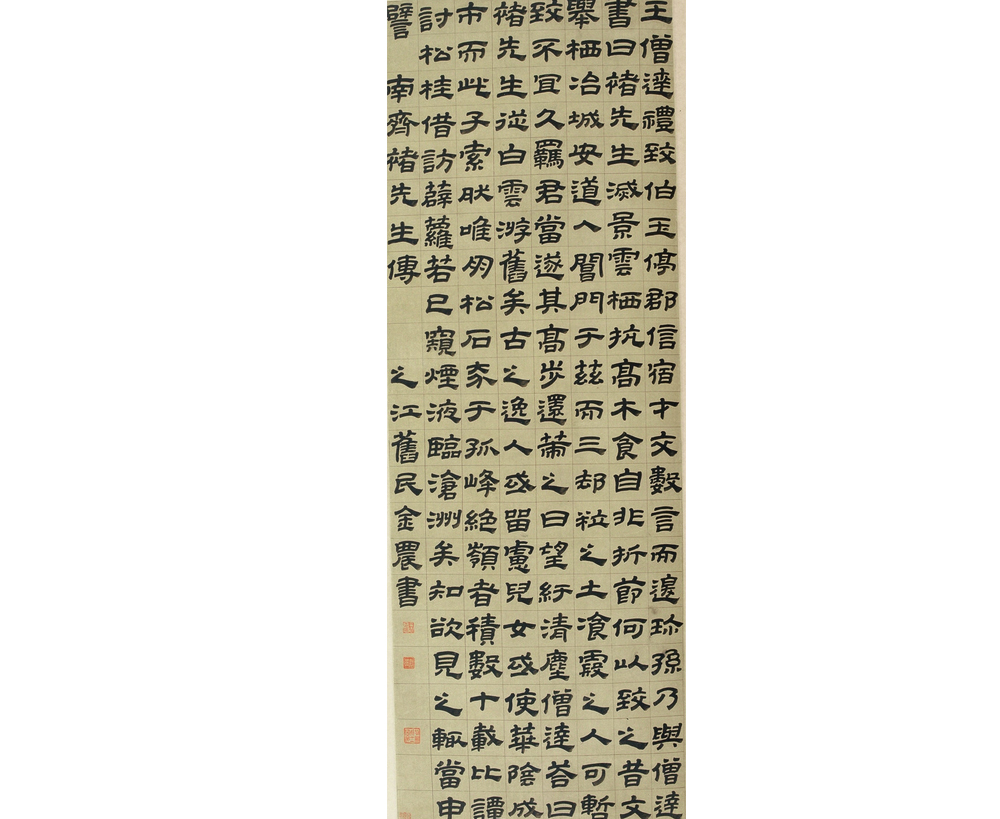 王僧達禮致伯玉停郡信宿才交數言而退珎孫乃與僧達
書曰褚先生滅景雲栖抗髙木食自非折節何以致之昔文
舉栖冶城安道入閶門于茲而三却粒之士飡霞之人可暫
致不冝久羈君當遂其髙步還策之日望紆清塵僧達荅曰
褚先生從白雲游舊矣古之逸人或留慮兒女或使華陰成
市而此子索肰唯朋松石夰于孤峰絶嶺者積數十載比譚
討松桂借訪薜蘿若已窺煙液臨滄洲矣知欲見之輙當申
譬 南齊褚先生傳 之江舊民金農書